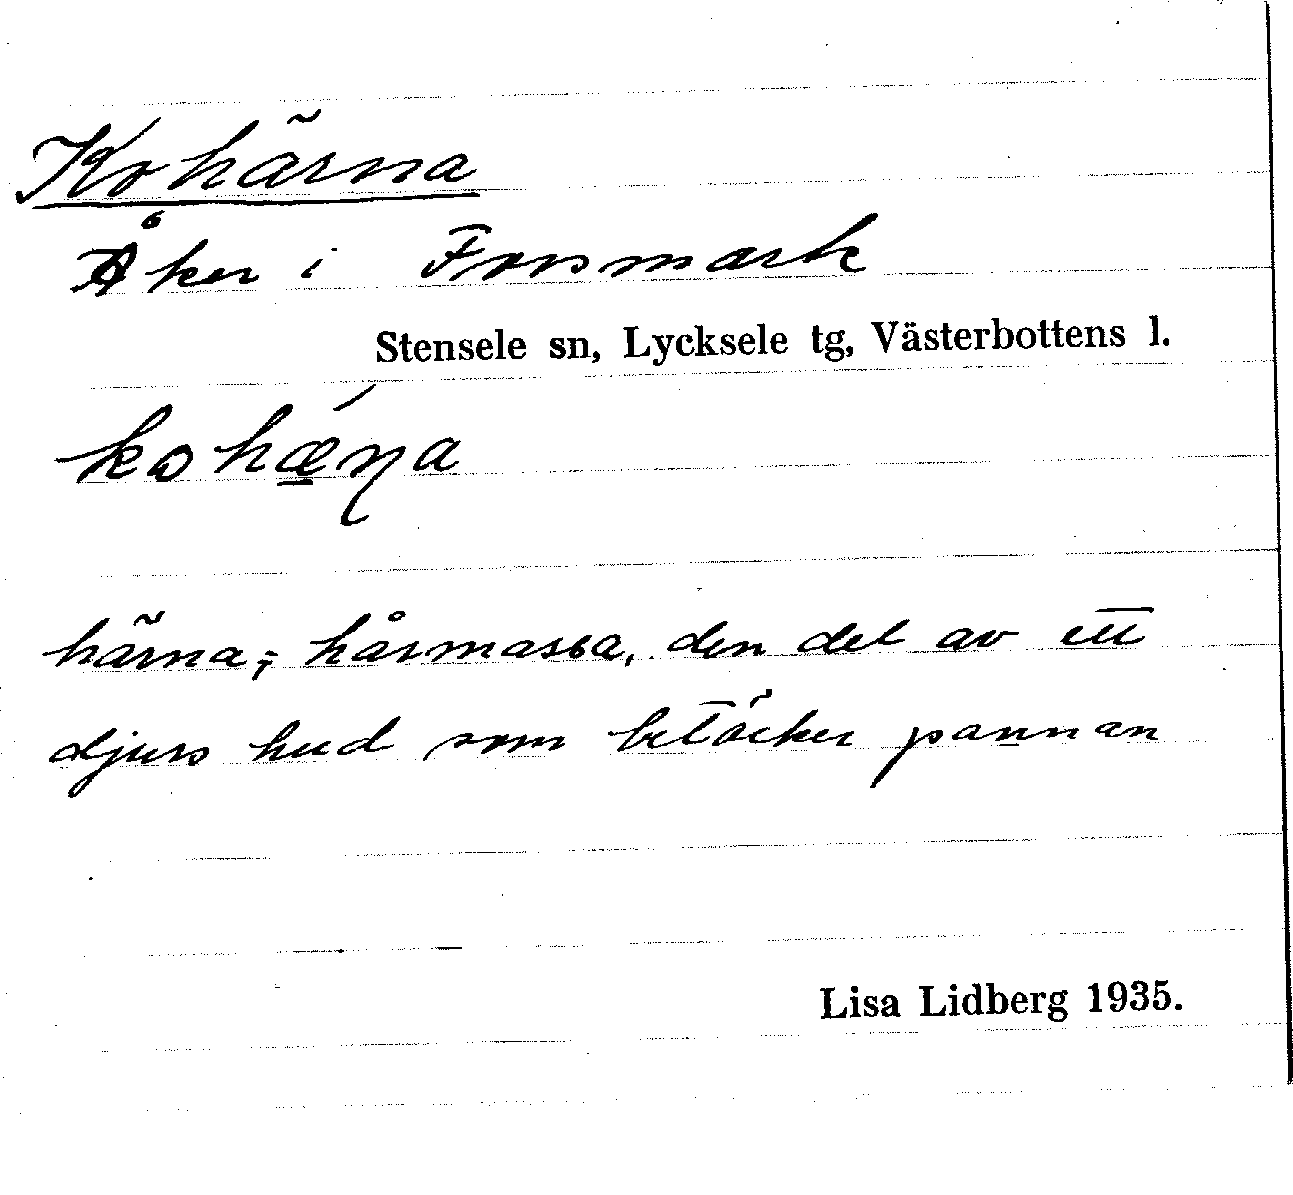 Kohärna
Åker i Forsmark
Stensele sn, Lycksele tg, Västerbottens l.
kohǽ̲ŋa
härna,; hårmassa, den del av ett
djurs hud som betäcker pannan
Lisa Lidberg 1935.